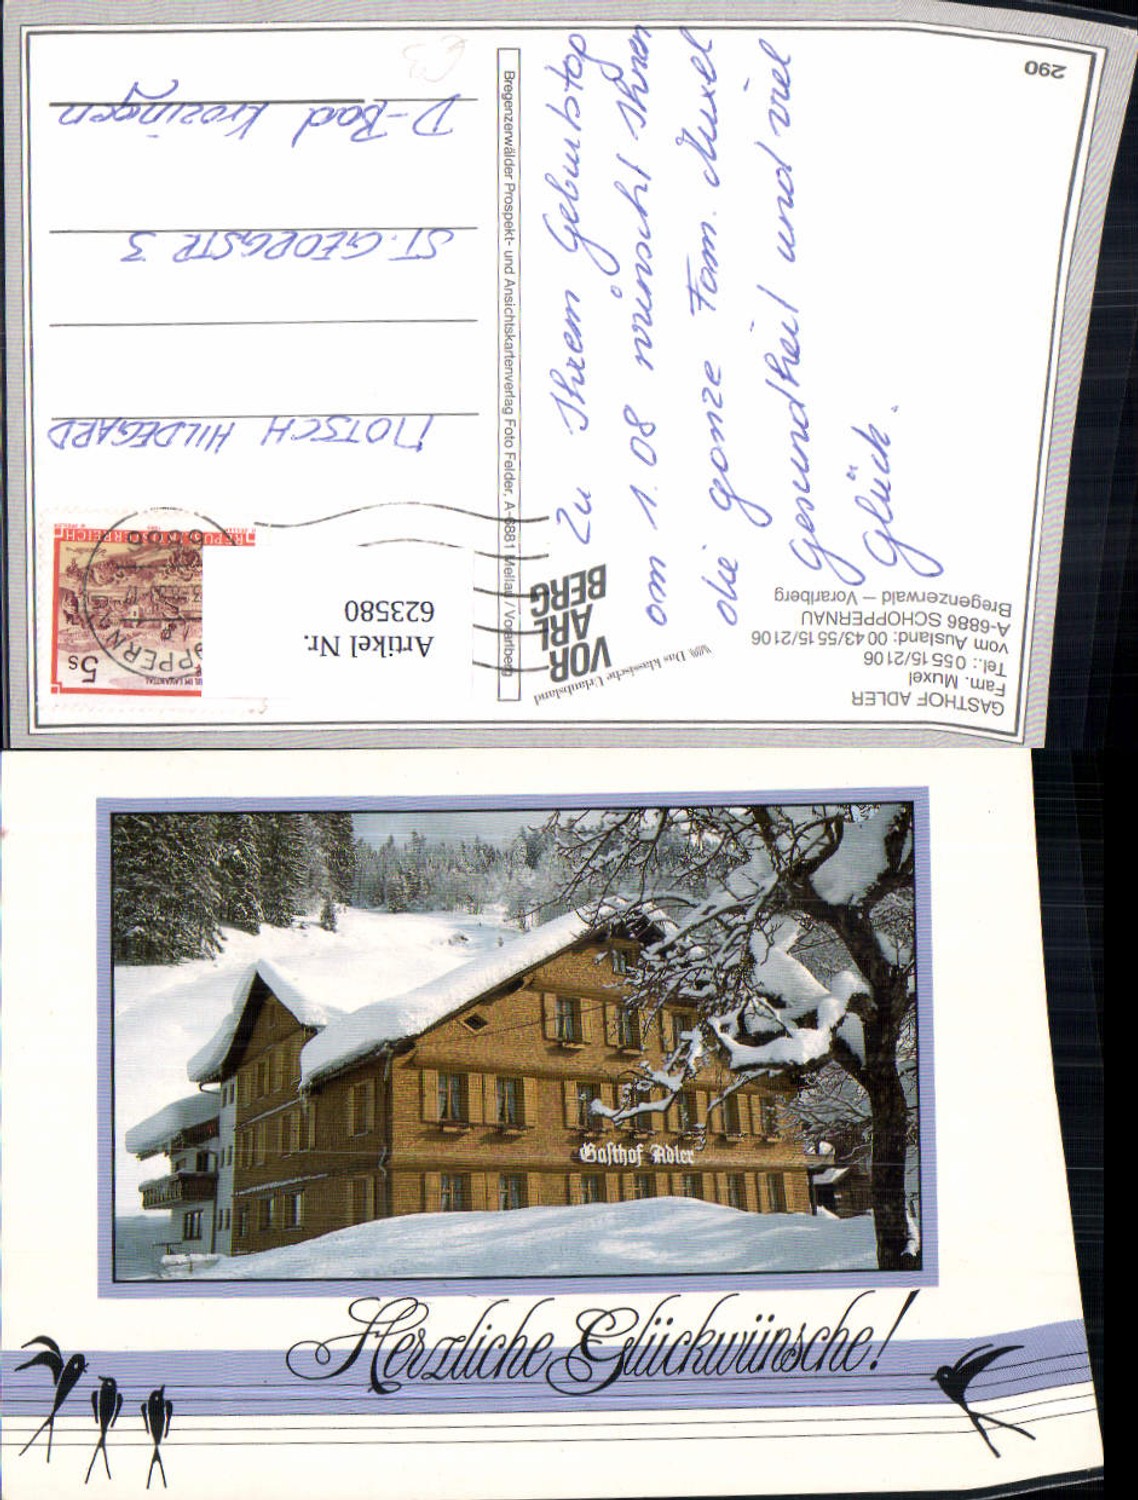 290
GASTHOF ADLER
Fam. Muxel
Tel.: 05515/2106
vom Ausland: 0043/5515/2106
A-6886 SCHOPPERNAU
Bregenzerwald – Vorarlberg
VOR
ARL
BERG
Das klassische Urlaubsland
Zu Ihrem Geburtstag
am 1.08 wünscht Ihnen
die ganze Fam. Muxel
Gesundheit und viel
Glück.
Bregenzerwälder Prospekt- und Ansichtskartenverlag Foto Felder, A-6881 Mellau / Vorarlberg
Artikel Nr.
623580
5s
MOTSCH HILDEGARD
ST. GEORGSTR 3
D-Bad Krozingen
Gasthof Adler
Herzliche Glückwünsche!